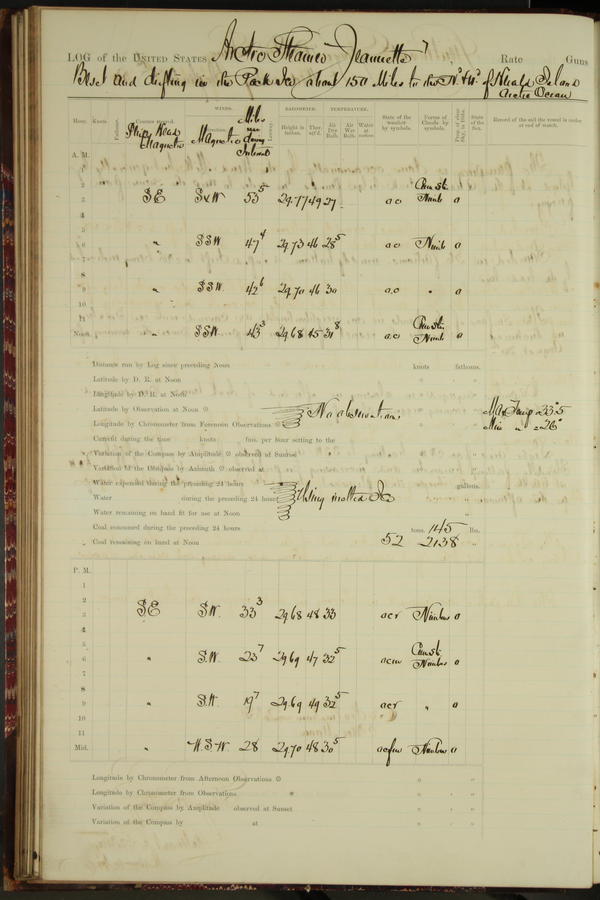 LOG of the UNITED STATES Arctic Steamer Jeannette, Rate Guns
Beset and drifting in the Pack Ice about 150 Miles to the Nd & Wd of Herald Island
Arctic Ocean
WINDS. BAROMETER. TEMPERATURE.
Hour. Knots. Fathoms. Courses steered. Ship's Head Magnetic Magnetic Miles Leeway. Height in inches. Ther. att'd. Air Dry Bulb. Air Wet Bulb. Water at surface. State of the weather by symbols. Forms of Clouds by symbols. Prop. of clear sky, in 10ths. State of the Sea. Record of the sail the vessel is under at end of watch.
A. M.
1
2
3 SE S x W 53 5 29.77 49 27 ao Cum st. Nimb 0
4
5
6 " SSW 47 4 29.73 46 28 5 ao Nimb 0
7
8
9 " SSW 42 6 29.70 46 30 ao " 0
10
11
Noon. " SSW 43 3 29.68 45 31 8 ao Cum st. Nimb 0
Distance run by Log since preceding Noon knots fathoms.
Latitude by D. R. at Noon
Longitude by D. R. at Noon
Latitude by Observation at Noon No observations Max Temp = 33°.5
Longitude by Chronometer from Forenoon Observations Min " = 26°
Current during the time knots fms. per hour setting to the
Variation of the Compass by Amplitude observed at Sunrise
Variation of the Compass by Azimuth observed at
Water expended during the preceding 24 hours gallons.
Water during the preceding 24 hours Using melted Ice
Water remaining on hand fit for use at Noon
Coal consumed during the preceding 24 hours tons. 145 lbs.
Coal remaining on hand at Noon 52 2138 "
P. M.
1
2
3 SE S.W. 33 3 29.68 48 33 acr Nimbus 0
4
5
6 " S.W. 23 7 29.69 47 32 5 acm Cum st. Nimbus 0
7
8
9 " S.W. 19 7 29.69 49 32 5 acr " 0
10
11
Mid. " W.S.W. 28 29.70 48 30 5 Nimbus 0
Longitude by Chronometer from Afternoon Observations
Longitude by Chronometer from Observations
Variation of the Compass by Amplitude observed at Sunset
Variation of the Compass by at